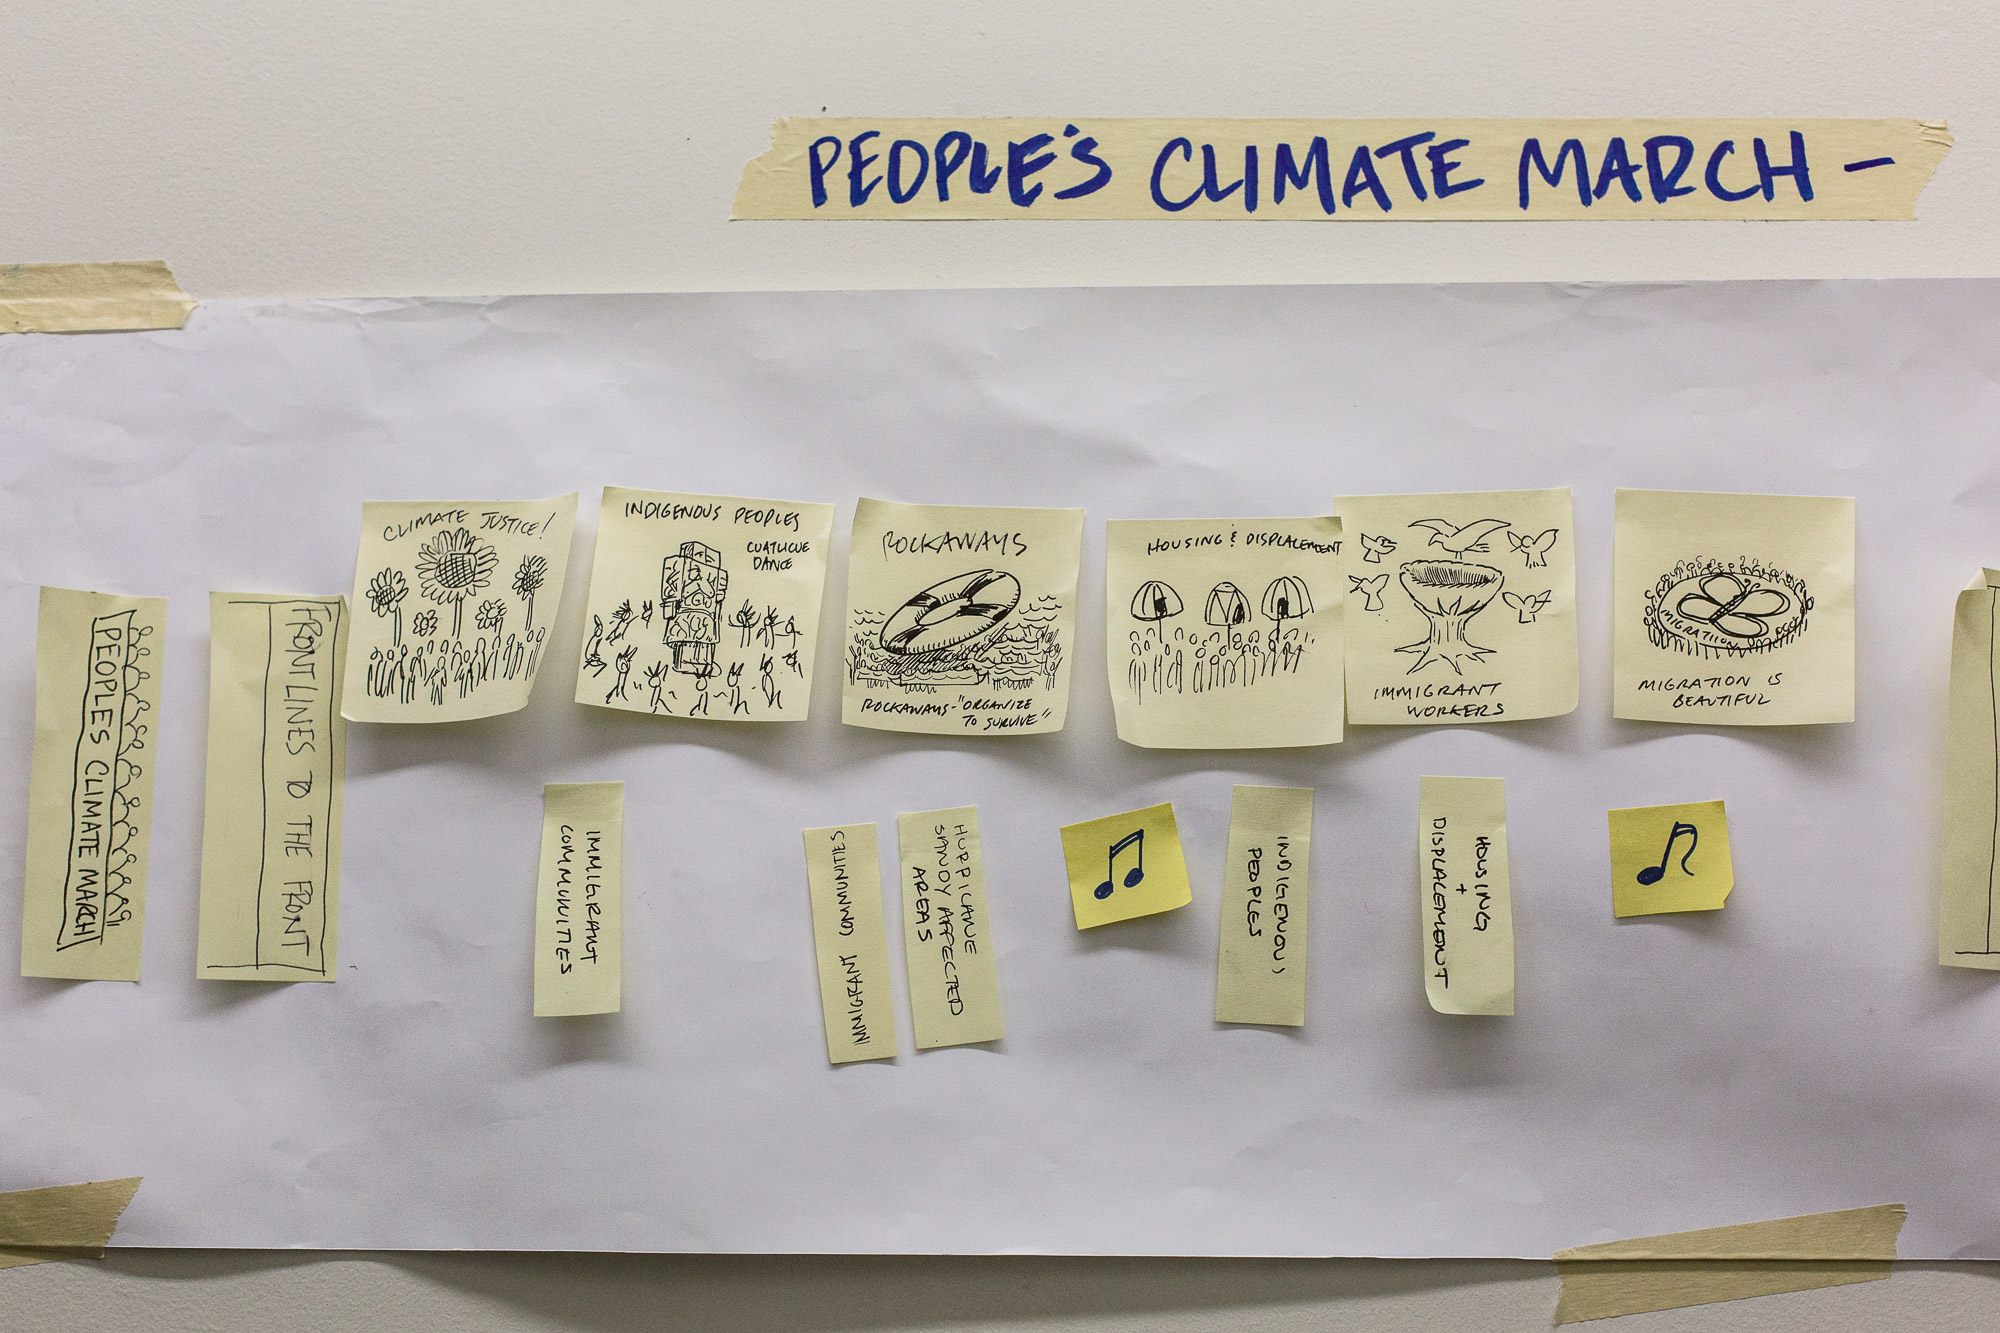 PEOPLE'S CLIMATE MARCH –
PEOPLES CLIMATE MARCH
FRONTLINES TO THE FRONT
CLIMATE JUSTICE!
INDIGENOUS PEOPLES
CUATLICUE
DANCE
ROCKAWAYS
ROCKAWAYS - "ORGANIZE
TO SURVIVE"
HOUSING & DISPLACEMENT
IMMIGRANT
WORKERS
MIGRATION
MIGRATION IS
BEAUTIFUL
IMMIGRANT
COMMUNITIES
IMMIGRANT COMMUNITIES
HURRICANE
SANDY AFFECTED
AREAS
INDIGENOUS
PEOPLES
HOUSING
+
DISPLACEMENT